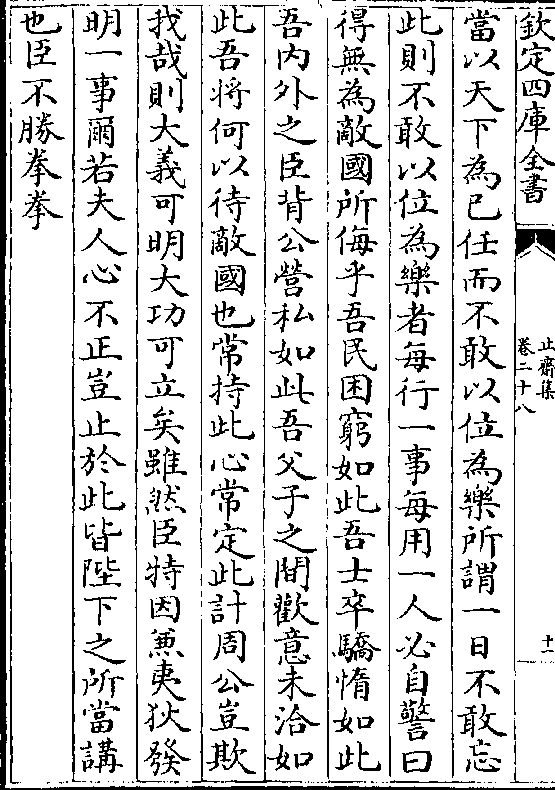 欽定四庫全書
止齋集
卷二十八
十一
當以天下為已任而不敢以位為樂所謂一日不敢忘
此則不敢以位為樂者每行一事每用一人必自警曰
得無為敵國所侮乎吾民困窮如此吾士卒驕惰如此
吾内外之臣背公營私如此吾父子之間歡意未洽如
此吾將何以待敵國也常持此心常定此計周公豈欺
我哉則大義可明大功可立矣雖然臣特因兼夷狄發
明一事爾若夫人心不正豈止於此皆陛下之所當講
也臣不勝拳拳